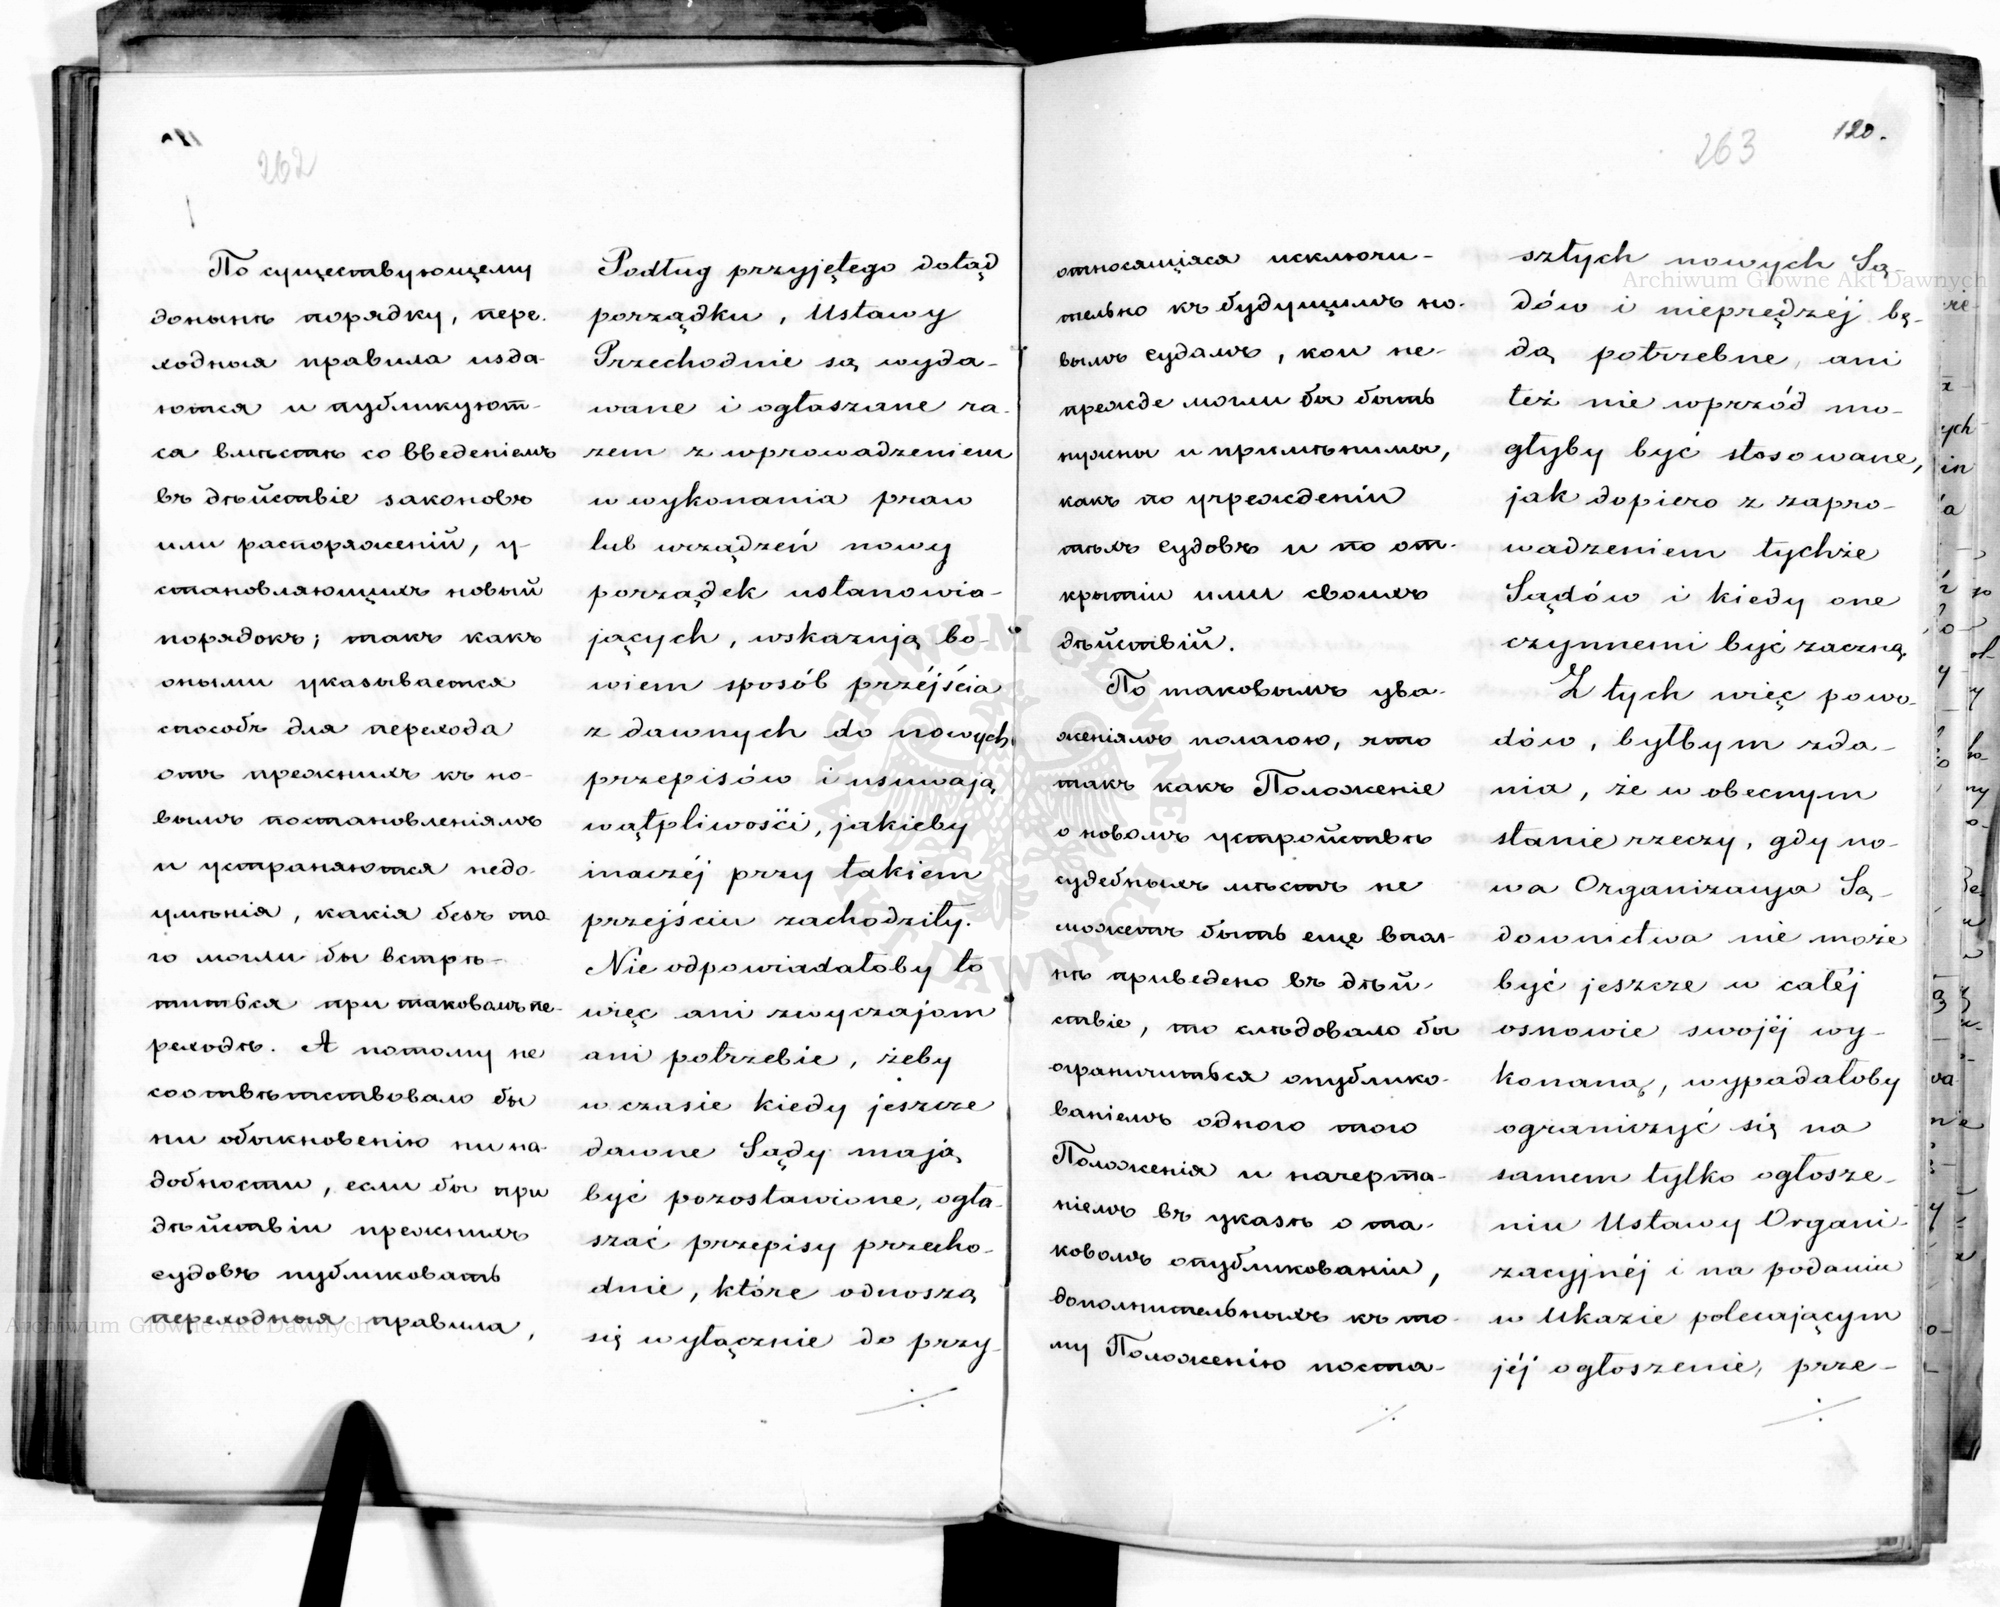 262
По существующему
донынѣ порядку, пере-
ходныя правила изда-
ются и публикуют-
ся вмѣстѣ со введеніемъ
въ дѣйствіе законовъ
или распоряженій, у-
становляющихъ новый
порядокъ; такъ какъ
оными указывается
способъ для перехода
отъ прежнихъ къ но-
вымъ постановленіямъ
и устраняются недо-
умѣнія, какія безъ то
го могли бы встрѣ-
титься при таковомъ пе-
реходѣ. А потому не
соотвѣтствовало бы
ни обыкновенію ни на-
добности, если бы при
дѣйствіи прежнихъ
судовъ публиковать
переходныя правила,
Podług przyjętego dotąd
porządku, Ustawy
Przechodnie są wyda-
wane i ogłaszane ra-
zem z wprowadzeniem
w wykonania praw
lub urządzeń nowy
porządek ustanowia-
jących, wskazują bo-
wiem sposób przéjścia
z dawnych do nowych
przepisów i usuwają
wątpliwości, jakieby
inaczéj przy takiem
przejściu zachodziły.
Nie odpowiadałoby to
więc ani zwyczajom
ani potrzebie, żeby
w czasie kiedy jeszcze
dawne Sądy mają
być pozostawione, ogła-
szać przepisy przecho-
dnie, które odnoszą
się wyłącznie do przy-
263
120.
относящіяся исключи-
тельно къ будущимъ но-
вымъ судамъ, кои не-
прежде могли бы быть
нужны и примѣнимы,
какъ по учрежденіи
тѣхъ судовъ и по от-
крытіи ими своихъ
дѣйствій.
По таковымъ ува-
женіямъ полагаю, что
такъ какъ Положеніе
о новомъ устройствѣ
судебныхъ мѣстъ не
можетъ быть еще впол-
нѣ приведено въ дѣй-
ствіе, то слѣдовало бы
ограничиться опублико-
ваніемъ одного того
Положенія и начерта-
ніемъ въ указѣ о та-
ковомъ опубликованіи,
дополнительныхъ къ то-
му Положенію поста-
szłych nowych Są-
dów i nieprędzéj bę-
dą potrzebne, ani
też nie wprzód mo-
głyby być stosowane,
jak dopiero z zapro-
wadzeniem tychże
Sądów i kiedy one
czynnemi być zaczną
Z tych więc powo-
dów, byłbym zda-
nia, że w obecnym
stanie rzeczy, gdy no-
wa Organizacya Są-
downictwa nie może
być jeszcze w całéj
osnowie swojéj wy-
konaną, wypadałoby
ograniczyć się na
samem tylko ogłosze-
niu Ustawy Organi-
zacyjnéj i na podaniu
w Ukazie polecającym
jéj ogłoszenie, prze-
Archiwum Główne Akt Dawnych
Archiwum Główne Akt Dawnych
ARCHIWUM GŁÓWNE AKT DAWNYCH